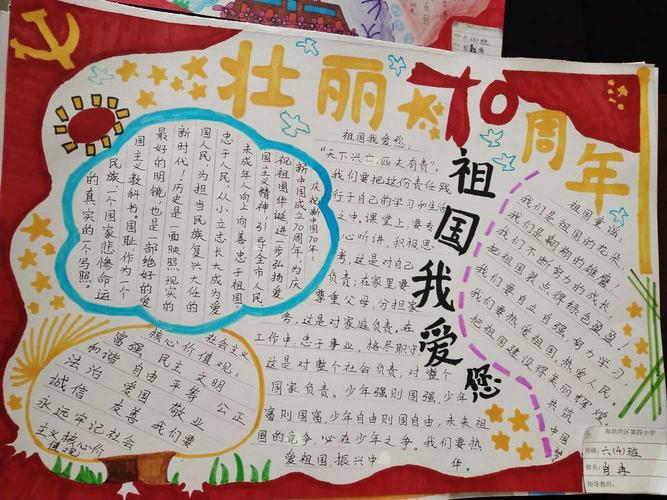 壮丽70周年
祖国我爱您
庆祝新中国70年:
新中国成立70周年,为庆
祝祖国华诞进一步弘扬爱
国主义精神,引导全市人民、
未成年人向上向善忠于祖国、
忠于人民,从小立志长大成为爱
国人民,为担当民族复兴大任的
新时代!历史是一面映照现实的
最好的明镜,也是一部绝好的爱
国主义教科书。国耻作为一个
民族一个国家悲惨命运
的真实的一个写照。
祖国我爱您:
"天下兴亡,匹夫有责"。
我们要把这份责任践
行于自己的学习和生活
之中,课堂上,要专
心听讲,积极思
考,这是对自己
负责;在家里要
尊重父母,分担家
务,这是对家庭负责,在
工作中,忠于事业,恪尽职守
这是对整个社会负责,对整个
国家负责。少年强则国强,少年
富则国富,少年自由则国自由,未来祖
国的竞争,必在少年之争。我们要热
爱祖国,振兴中华。
祖国童谣:
我们是祖国的花朵。
我们是翱翔的雄鹰
我们不断努力的成长,
把祖国装点得绿色盈盈!
我们要自立自强,努力学习,
我们要热爱祖国,热爱人民,
把祖国建设得美丽辉煌,
共筑
中国
社会主义
核心价值观:
富强 民主 文明
和谐 自由 平等 公正
法治 爱国 敬业
诚信 友善 我们要
永远牢记社会
主义核心价
值观
海勃湾区第四小学
班级:六(4)班
姓名:肖冉
指导教师: